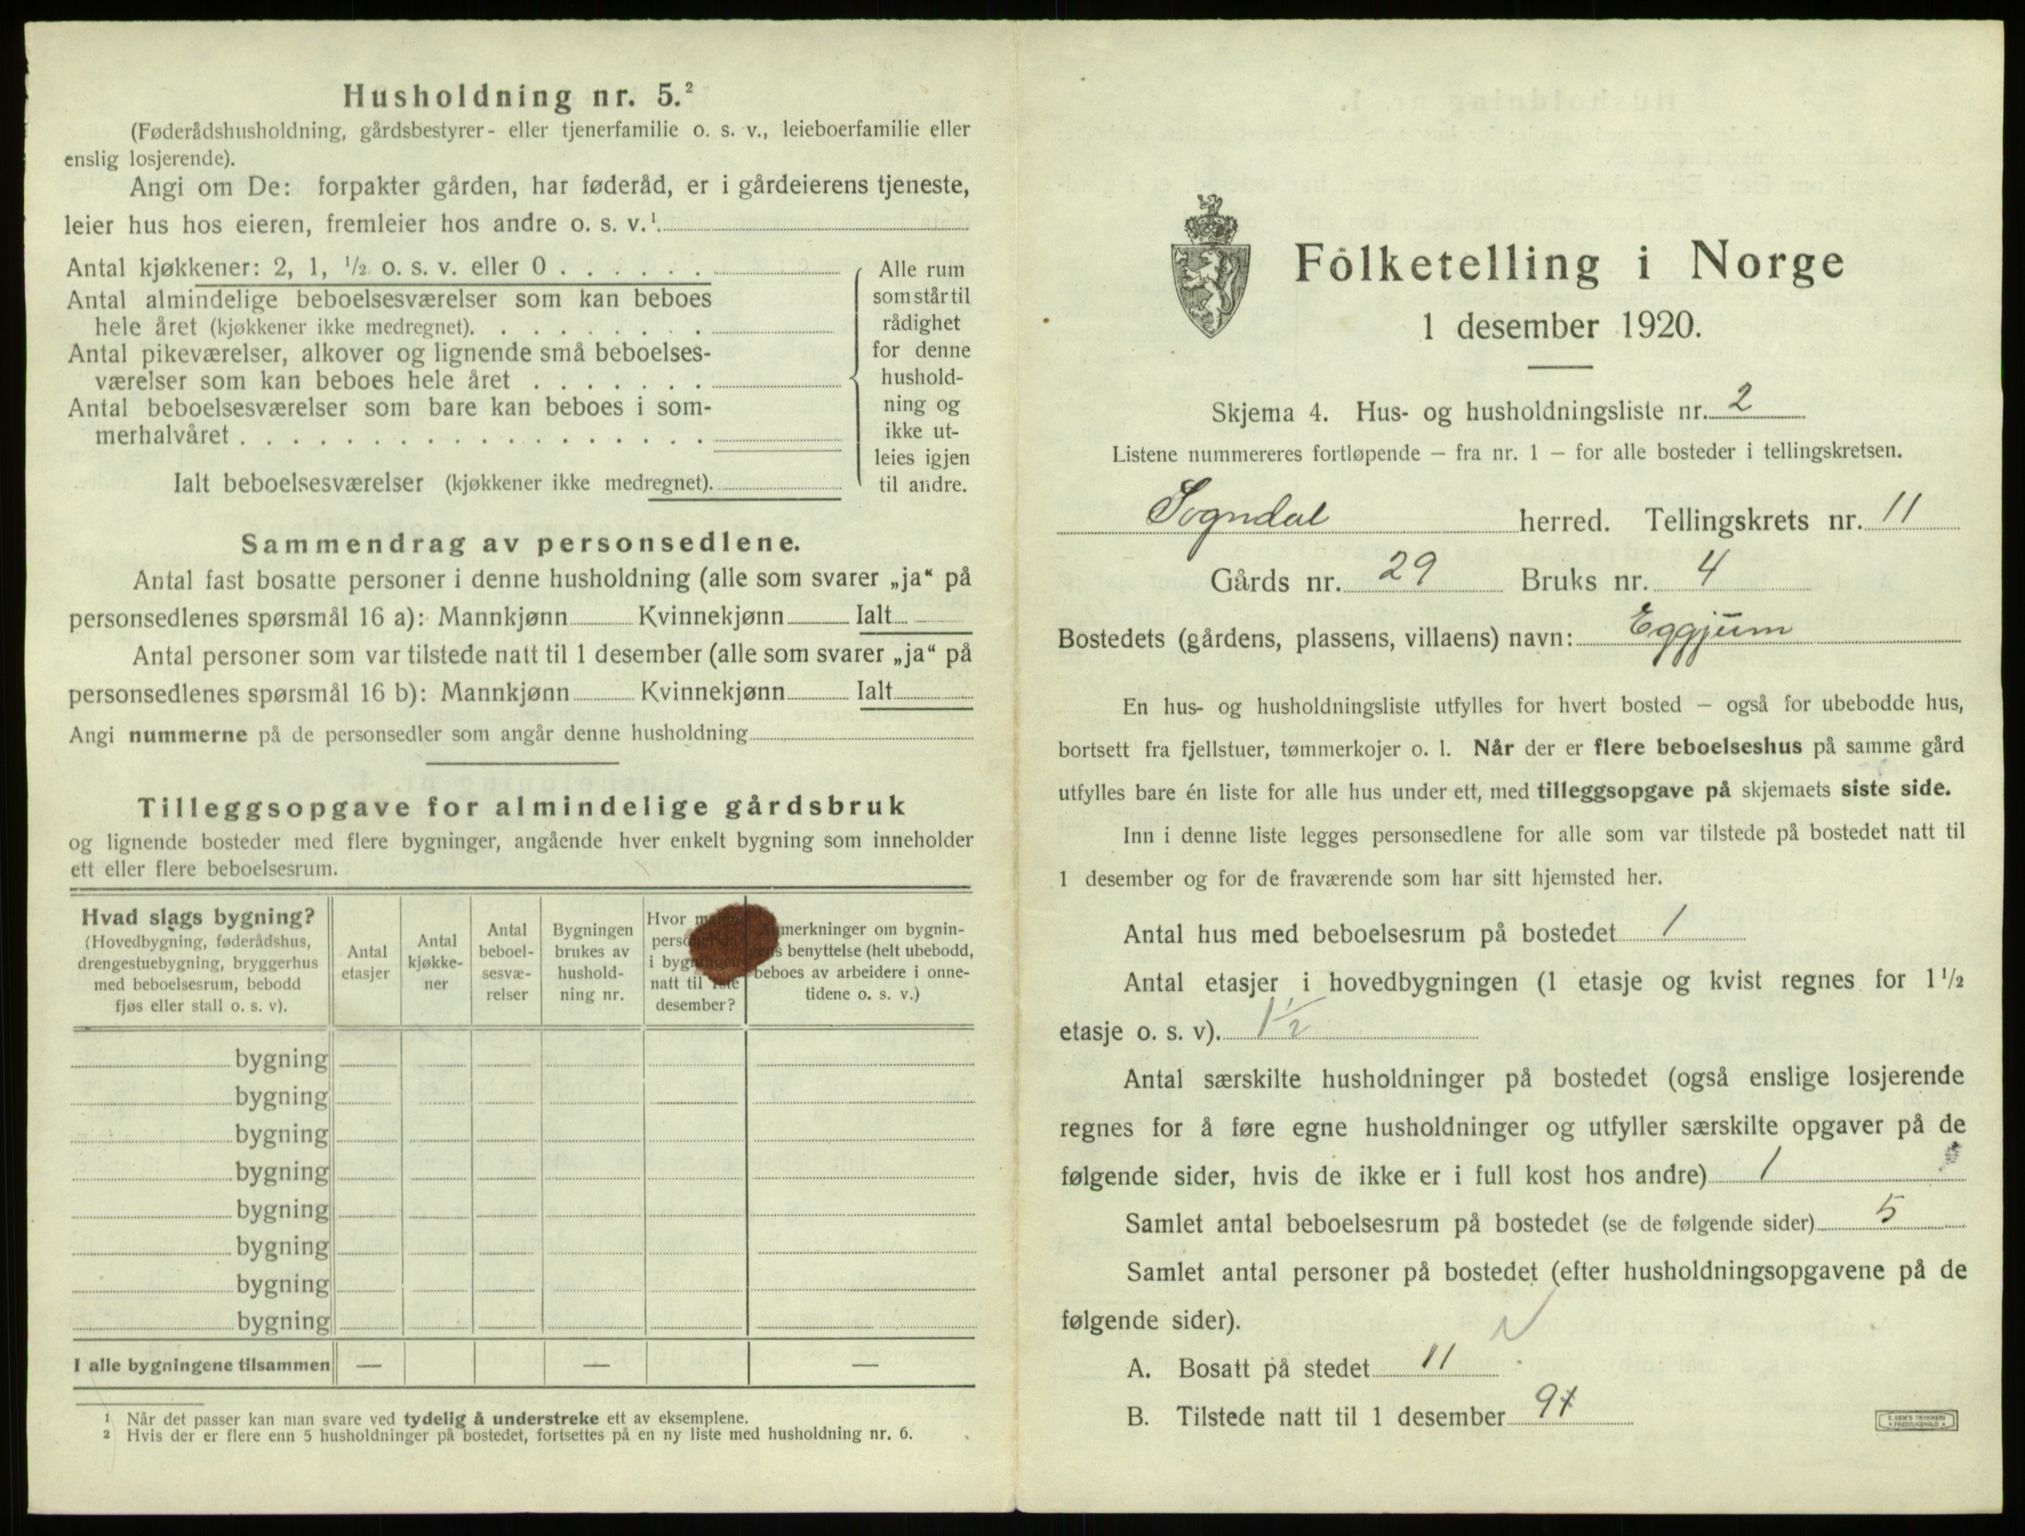 Husholdning nr. 5.²
(Føderådshusholdning, gårdsbestyrer- eller tjenerfamilie o. s. v., leieboerfamilie eller
enslig losjerende).
Angi om De: forpakter gården, har føderåd, er i gårdeierens tjeneste,
leier hus hos eieren, fremleier hos andre o. s. v.¹
Antal kjøkkener: 2, 1, ½ o. s. v. eller 0 . . . . . .
Antal almindelige beboelsesværelser som kan beboes
hele året (kjøkkener ikke medregnet). . . . . . . . .
Antal pikeværelser, alkover og lignende små beboelses-
værelser som kan beboes hele året . . . . . . .
Antal beboelsesværelser som bare kan beboes i som-
merhalvåret . . . . . . . . . . . . . . . . . .
Ialt beboelsesværelser (kjøkkener ikke medregnet).
Alle rum
som står til
rådighet
for denne
hushold-
ning og
ikke ut-
leies igjen
til andre.
Sammendrag av personsedlene.
Antal fast bosatte personer i denne husholdning (alle som svarer „ja“ på
personsedlenes spørsmål 16 a): Mannkjønn Kvinnekjønn Ialt
Antal personer som var tilstede natt til 1 desember (alle som svarer „ja“ på
personsedlenes spørsmål 16 b): Mannkjønn Kvinnekjønn Ialt
Angi nummerne på de personsedler som angår denne husholdning
Tilleggsopgave for almindelige gårdsbruk
og lignende bosteder med flere bygninger, angående hver enkelt bygning som inneholder
ett eller flere beboelsesrum.
Hvad slags bygning?
(Hovedbygning, føderådshus,
drengestuebygning, bryggerhus
med beboelsesrum, bebodd
fjøs eller stall o. s. v).
Antal
etasjer
Antal
kjøkke-
ner
Antal
beboel-
sesvæ-
relser
Bygningen
brukes av
hushold-
ning nr.
Hvor
i
natt til
desember?
bygnin-
benyttelse (helt ubebodd,
beboes av arbeidere i onne-
tidene o. s. v.)
bygning
bygning
bygning
bygning
bygning
bygning
bygning
bygning
I alle bygningene tilsammen — — —
¹ Når det passer kan man svare ved tydelig å understreke ett av eksemplene.
² Hvis der er flere enn 5 husholdninger på bostedet, fortsettes på en ny liste med husholdning nr. 6.
Folketelling i Norge
1 desember 1920.
Skjema 4. Hus- og husholdningsliste nr. 2
Listene nummereres fortløpende — fra nr. 1 — for alle bosteder i tellingskretsen.
Sogndal herred. Tellingskrets nr. 11
Gårds nr. 29 Bruks nr. 4
Bostedets (gårdens, plassens, villaens) navn: Eggjum
En hus- og husholdningsliste utfylles for hvert bosted — også for ubebodde hus,
bortsett fra fjellstuer, tømmerkojer o. l. Når der er flere beboelseshus på samme gård
utfylles bare én liste for alle hus under ett, med tilleggsopgave på skjemaets siste side.
Inn i denne liste legges personsedlene for alle som var tilstede på bostedet natt til
1 desember og for de fraværende som har sitt hjemsted her.
Antal hus med beboelsesrum på bostedet 1
Antal etasjer i hovedbygningen (1 etasje og kvist regnes for 1½
etasje o. s. v). 1½
Antal særskilte husholdninger på bostedet (også enslige losjerende
regnes for å føre egne husholdninger og utfyller særskilte opgaver på de
følgende sider, hvis de ikke er i full kost hos andre) 1
Samlet antal beboelsesrum på bostedet (se de følgende sider) 5
Samlet antal personer på bostedet (efter husholdningsopgavene på de
følgende sider).
A. Bosatt på stedet 11
B. Tilstede natt til 1 desember 9